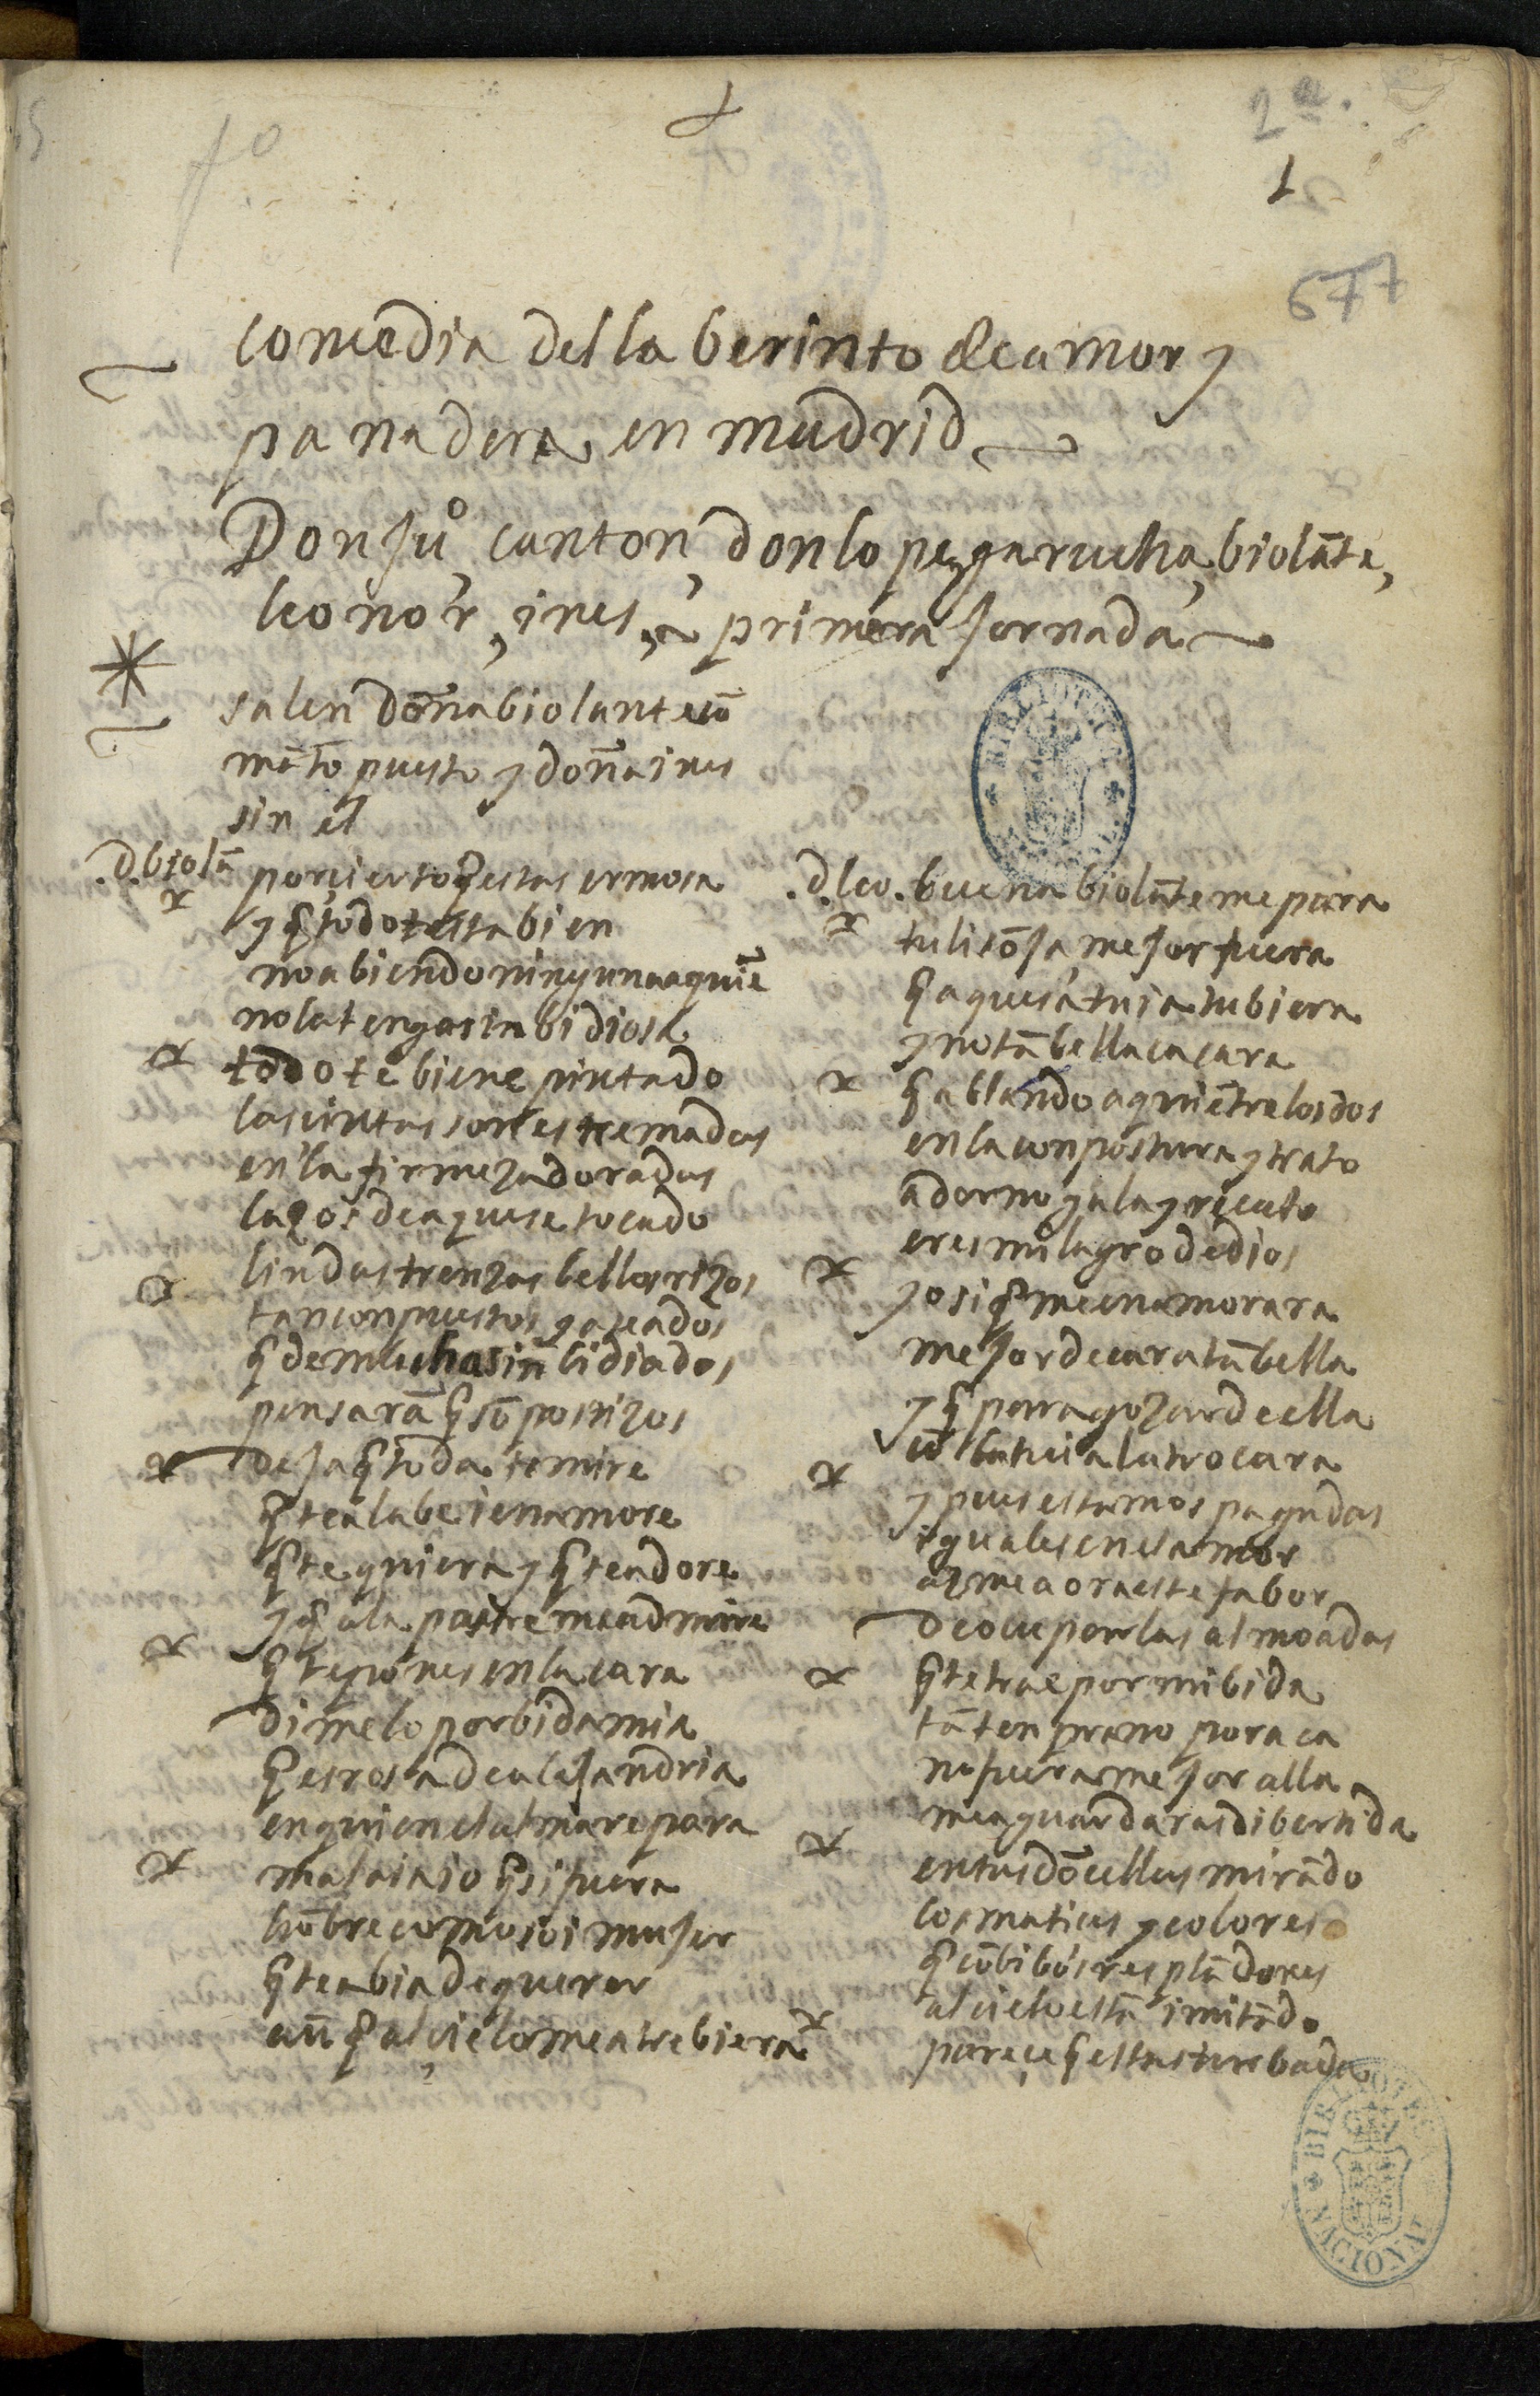 2ª.
1
677
comedia del laberinto de amor y
panadera en madrid
Don juº canton, don lopez garucha, biolāte,
leonor, ines, primera jornada
salen doña biolante cō
māto puesto y doña ines
sin el
.d. biolā por çierto q̄ estas ermosa
y q̄ todo te esta bien
no abiendo ninguna a quiē
no la tengas inbidiosa
todo te biene pintado
las cintas son estremadas
en la firmeza doradas
lazos de aquese tocado
lindas trenzas bellos rizos
tan conpuestos y aseados
q̄ de muchas inbidiados
pensarā q̄ sō postizos
deja q̄ toda te mire
q̄ te alabe i enamore
q̄ te quiera y q̄ te adore
y q̄ a la postre me admire
q̄ te pones en la cara
dimelo por bida mia
q̄ es rosa de alejandria
en quien el alma repara
mal aia io q̄ si fuera
hōbre como soi mujer
q̄ te abia de querer
aūq̄ al çielo me atrebiera
.d. leo. buena biolāte me para
tu lisōja, mejor fuera
q̄ aquesa tuia tubiera
y no tā bellaca cara
q̄ ablando aqui ētre los dos
en la conpostura y trato
adorno gala y recato
eres milagro de dios
yo si q̄ me enamorara
mejor de cara tā bella
y q̄ para gozar de ella
cō la tuia la trocara
y pues estamos pagadas
iguales en es amor
azme aora este fabor
de ocupar las almoadas
q̄ te trae por mi bida
tā tenprano por aca
no fuera mejor alla
me aguardaras dibertida
en tus dōcellas mirādo
los matices y colores
q̄ cō bibos resplādores
al cielo estā imitādo
pareçe q̄ estas turbada
BIBLIOTECA NACIONAL